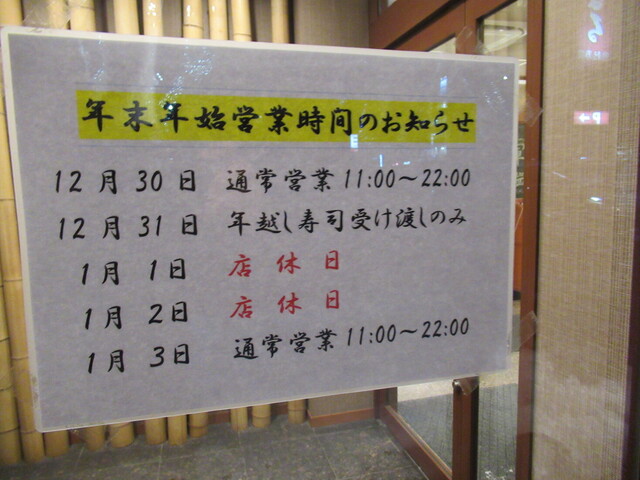 年末年始営業時間のお知らせ
12月30日 通常営業11:00～22:00
12月31日 年越し寿司受け渡しのみ
1月1日 店休日
1月2日 店休日
1月3日 通常営業11:00～22:00